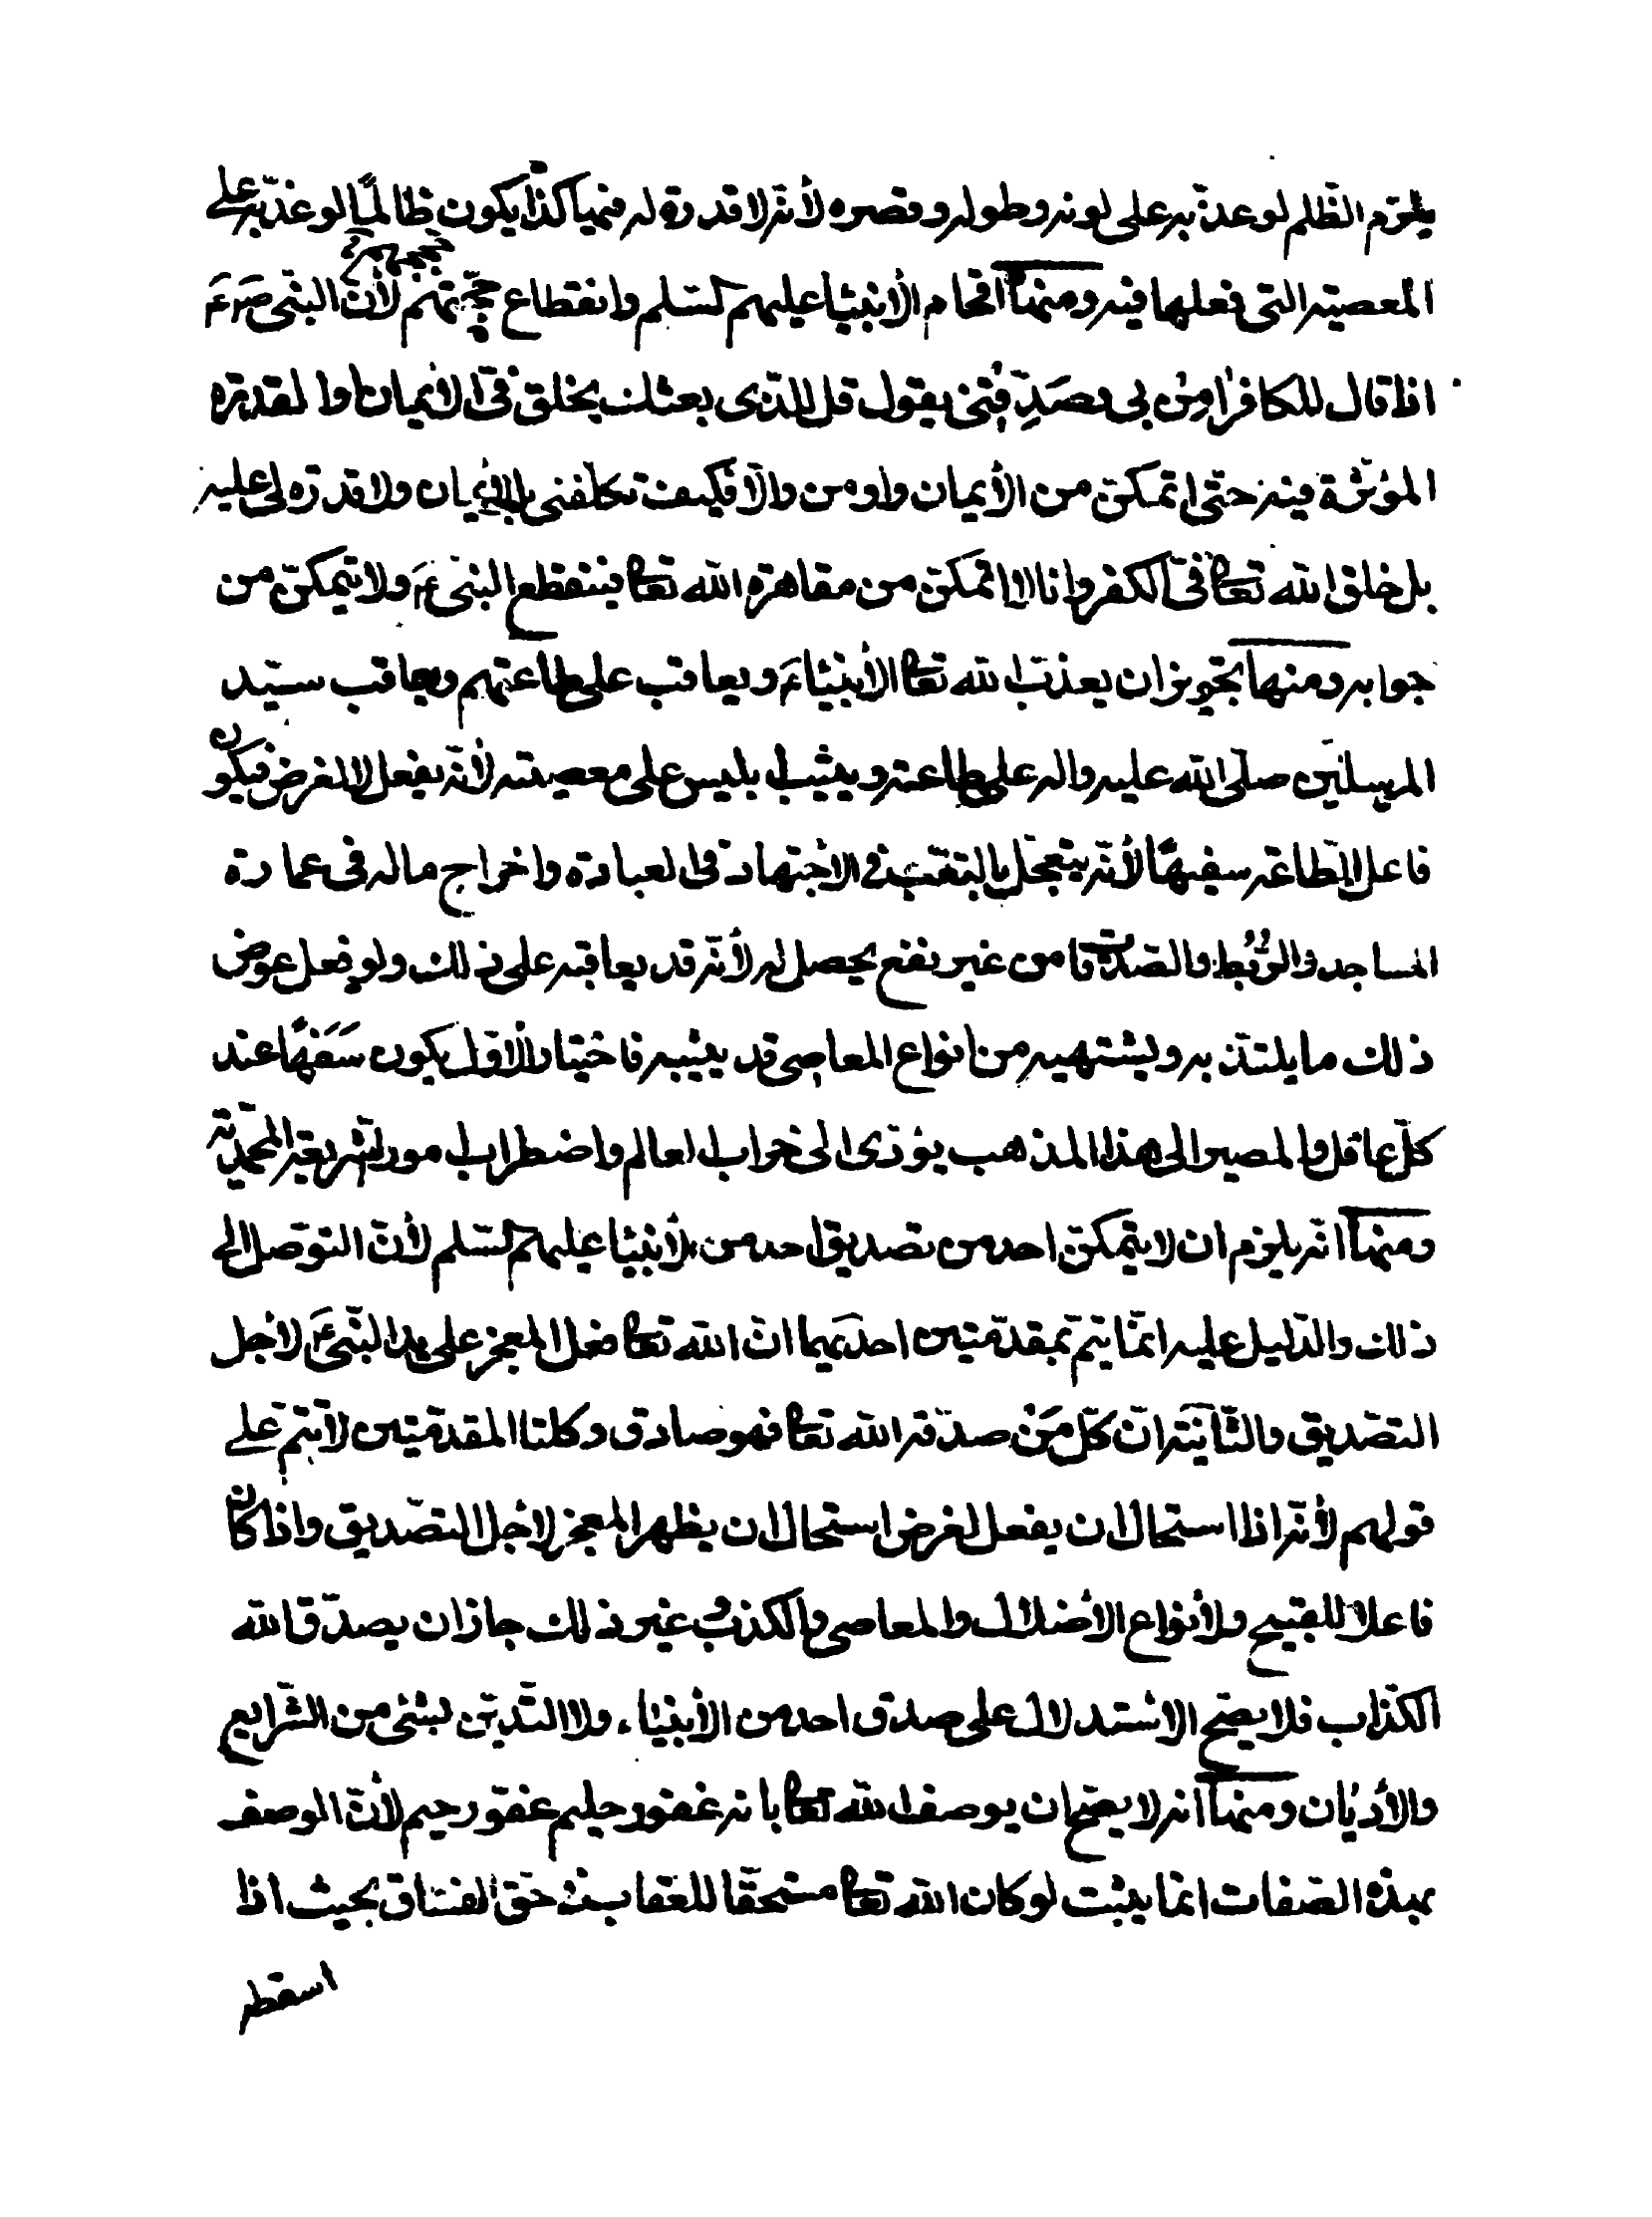 يلزم الظلم لو عذبه على لونه وطوله وقصره لأنّه لا قدرة له فيها كذا يكون ظالمًا لو عذبه على
المعصية التي فعلها فيه ومنها افحام الأنبيا عليهم السلم وانقطاع حجّتهم لأنّ النبيّ صرع
اذا قال للكافر اٰمِن بي وصَدِّقني يقول قل للذي بعثك يخلق فيّ الايمان او القدرة
المؤثرة فيه حتى اتمكن من الأيمان واومن والّا فكيف تكلفني بالايمان ولا قدرة لي عليه
بل خلق الله تعالى فيّ الكفر وانا لا اتمكن من مقاهرة الله تعالى فينقطع النبيّ ع ولا يتمكن من
جوابه ومنها تجويز ان يعذب الله تعالى الأنبياء ع ويعاقب على طاعتهم ويعاقب سيّد
المرسلين صلّى الله عليه واله على طاعته ويثيب ابليس على معصيته لأنّه يفعل لا لغرض فيكون
فاعل الطاعة سفيهًا لأنّه يتعجّل بالتعب في الاجتهاد في العبادة واخراج ماله في عمارة
المساجد والرُّبُط والصّدقات من غير نفع يحصل له لأنّه قد يعاقبه على ذلك ولو فعل عوض
ذلك ما يلتذ به ويشتهيه من انواع المعاصي قد يثيبه فاختيار الاول يكون سَفَهًا عند
كلّ عاقل والمصير الى هذا المذهب يؤدّى الى خراب العالم واضطراب امور الشريعة المحمّدية
ومنها انّه يلزم ان لا يتمكّن احد من تصديق احد من الأنبيا عليهم السلم لأنّ التوصل الى
ذلك والدّليل عليه انمّا يتم بمقدّمتين احديهما انّ الله تعالى فعل المعجز على يد النبّي ع لاجل
التصديق والثّانية انّ كلّ مَنْ صدّقه الله تعالى فهو صادق وكلتا المقدمّتين لا تتم على
قولهم لأنّه اذا استحال ان يفعل لغرض استحال ان يظهر المعجز لاجل التصديق واذا كان
فاعلا للقبيح ولأنواع الأضلال والمعاصي والكذب وغير ذلك جاز ان يصدّق الله
الكذاب فلا يصح الاستدلال على صدق احد من الأنبياء ولا التديّن بشئ من الشّرايع
والأديان ومنها انه لا يصح ان يوصف الله تعالى بانه غفور حليم عفو رحيم لأنّ الوصف
بهذه الصفات انما يثبت لو كان الله تعالى مستحقّا للعقاب في حق الفسّاق بحيث اذا
اسقطه